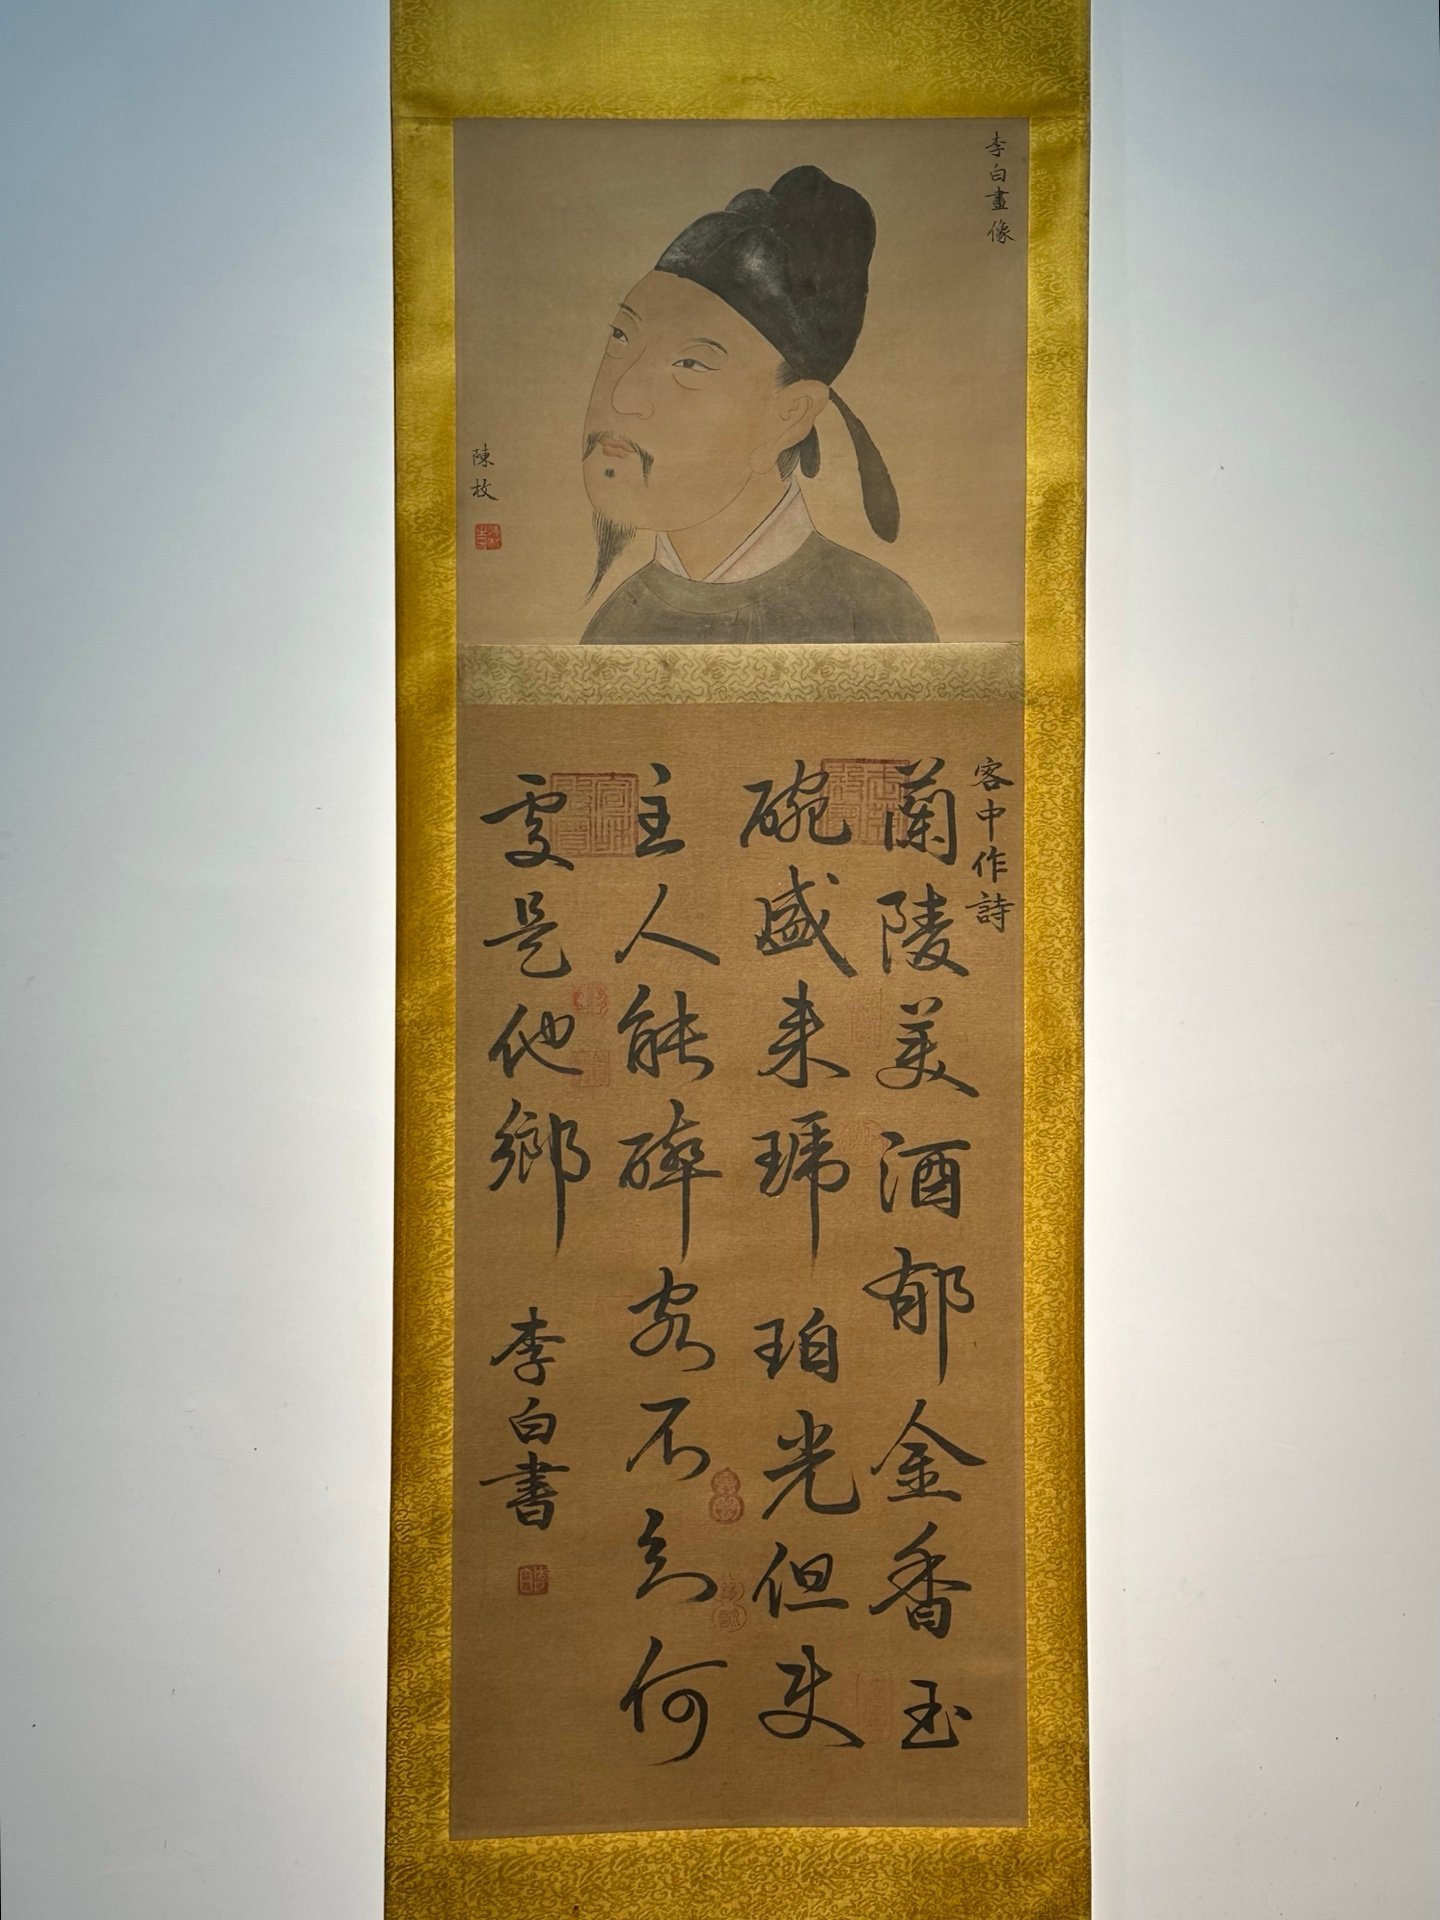 李白畫像
陳枚
客中作詩
蘭陵美酒郁金香玉
碗盛来琥珀光但使
主人能醉客不知何
處是他鄉
李白書